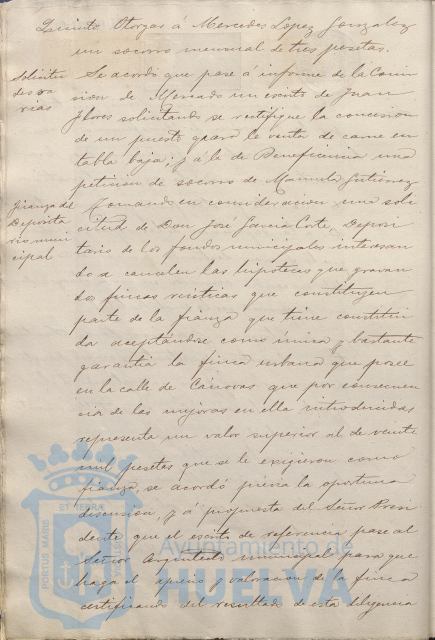 Otorgar á Mercedes Lopez Gonzalez
un socorro mensual de tres pesetas.
Solicitu
des va
rias
Se acordó que pase á informe de la Comi
sion de Mercado un escrito de Juan
Flores solicitando se rectifique la concesion
de un puesto para la venta de carne en
tabla baja; y á la de Beneficencia una
peticion de socorro de Manuela Gutierrez
Fianza del
Deposita
rio muni
cipal
Tomando en consideracion una soli
citud de Don José Garcia Corte, Deposi
tario de los fondos municipales interesan
do se cancelen las hipotecas que gravan
dos fincas rústicas que constituyen
parte de la fianza que tiene constitui
da aceptándose como única y bastante
garantia la finca urbana que posee
en la calle de Cánovas que por consecuen
cia de las mejoras en ella introducidas
representa un valor superior al de veinte
mil pesetas que se le exigieron como
fianza, se acordó previa la oportuna
discusion, y á propuesta del Señor Presi
dente que el escrito de referencia pase al
Señor Arquitecto municipal para que
haga el aprecio y valoracion de la finca
certificando del resultado de esta diligencia
PORTUS MARIS
ET TERRÆ
Ayuntamiento de
HUELVA